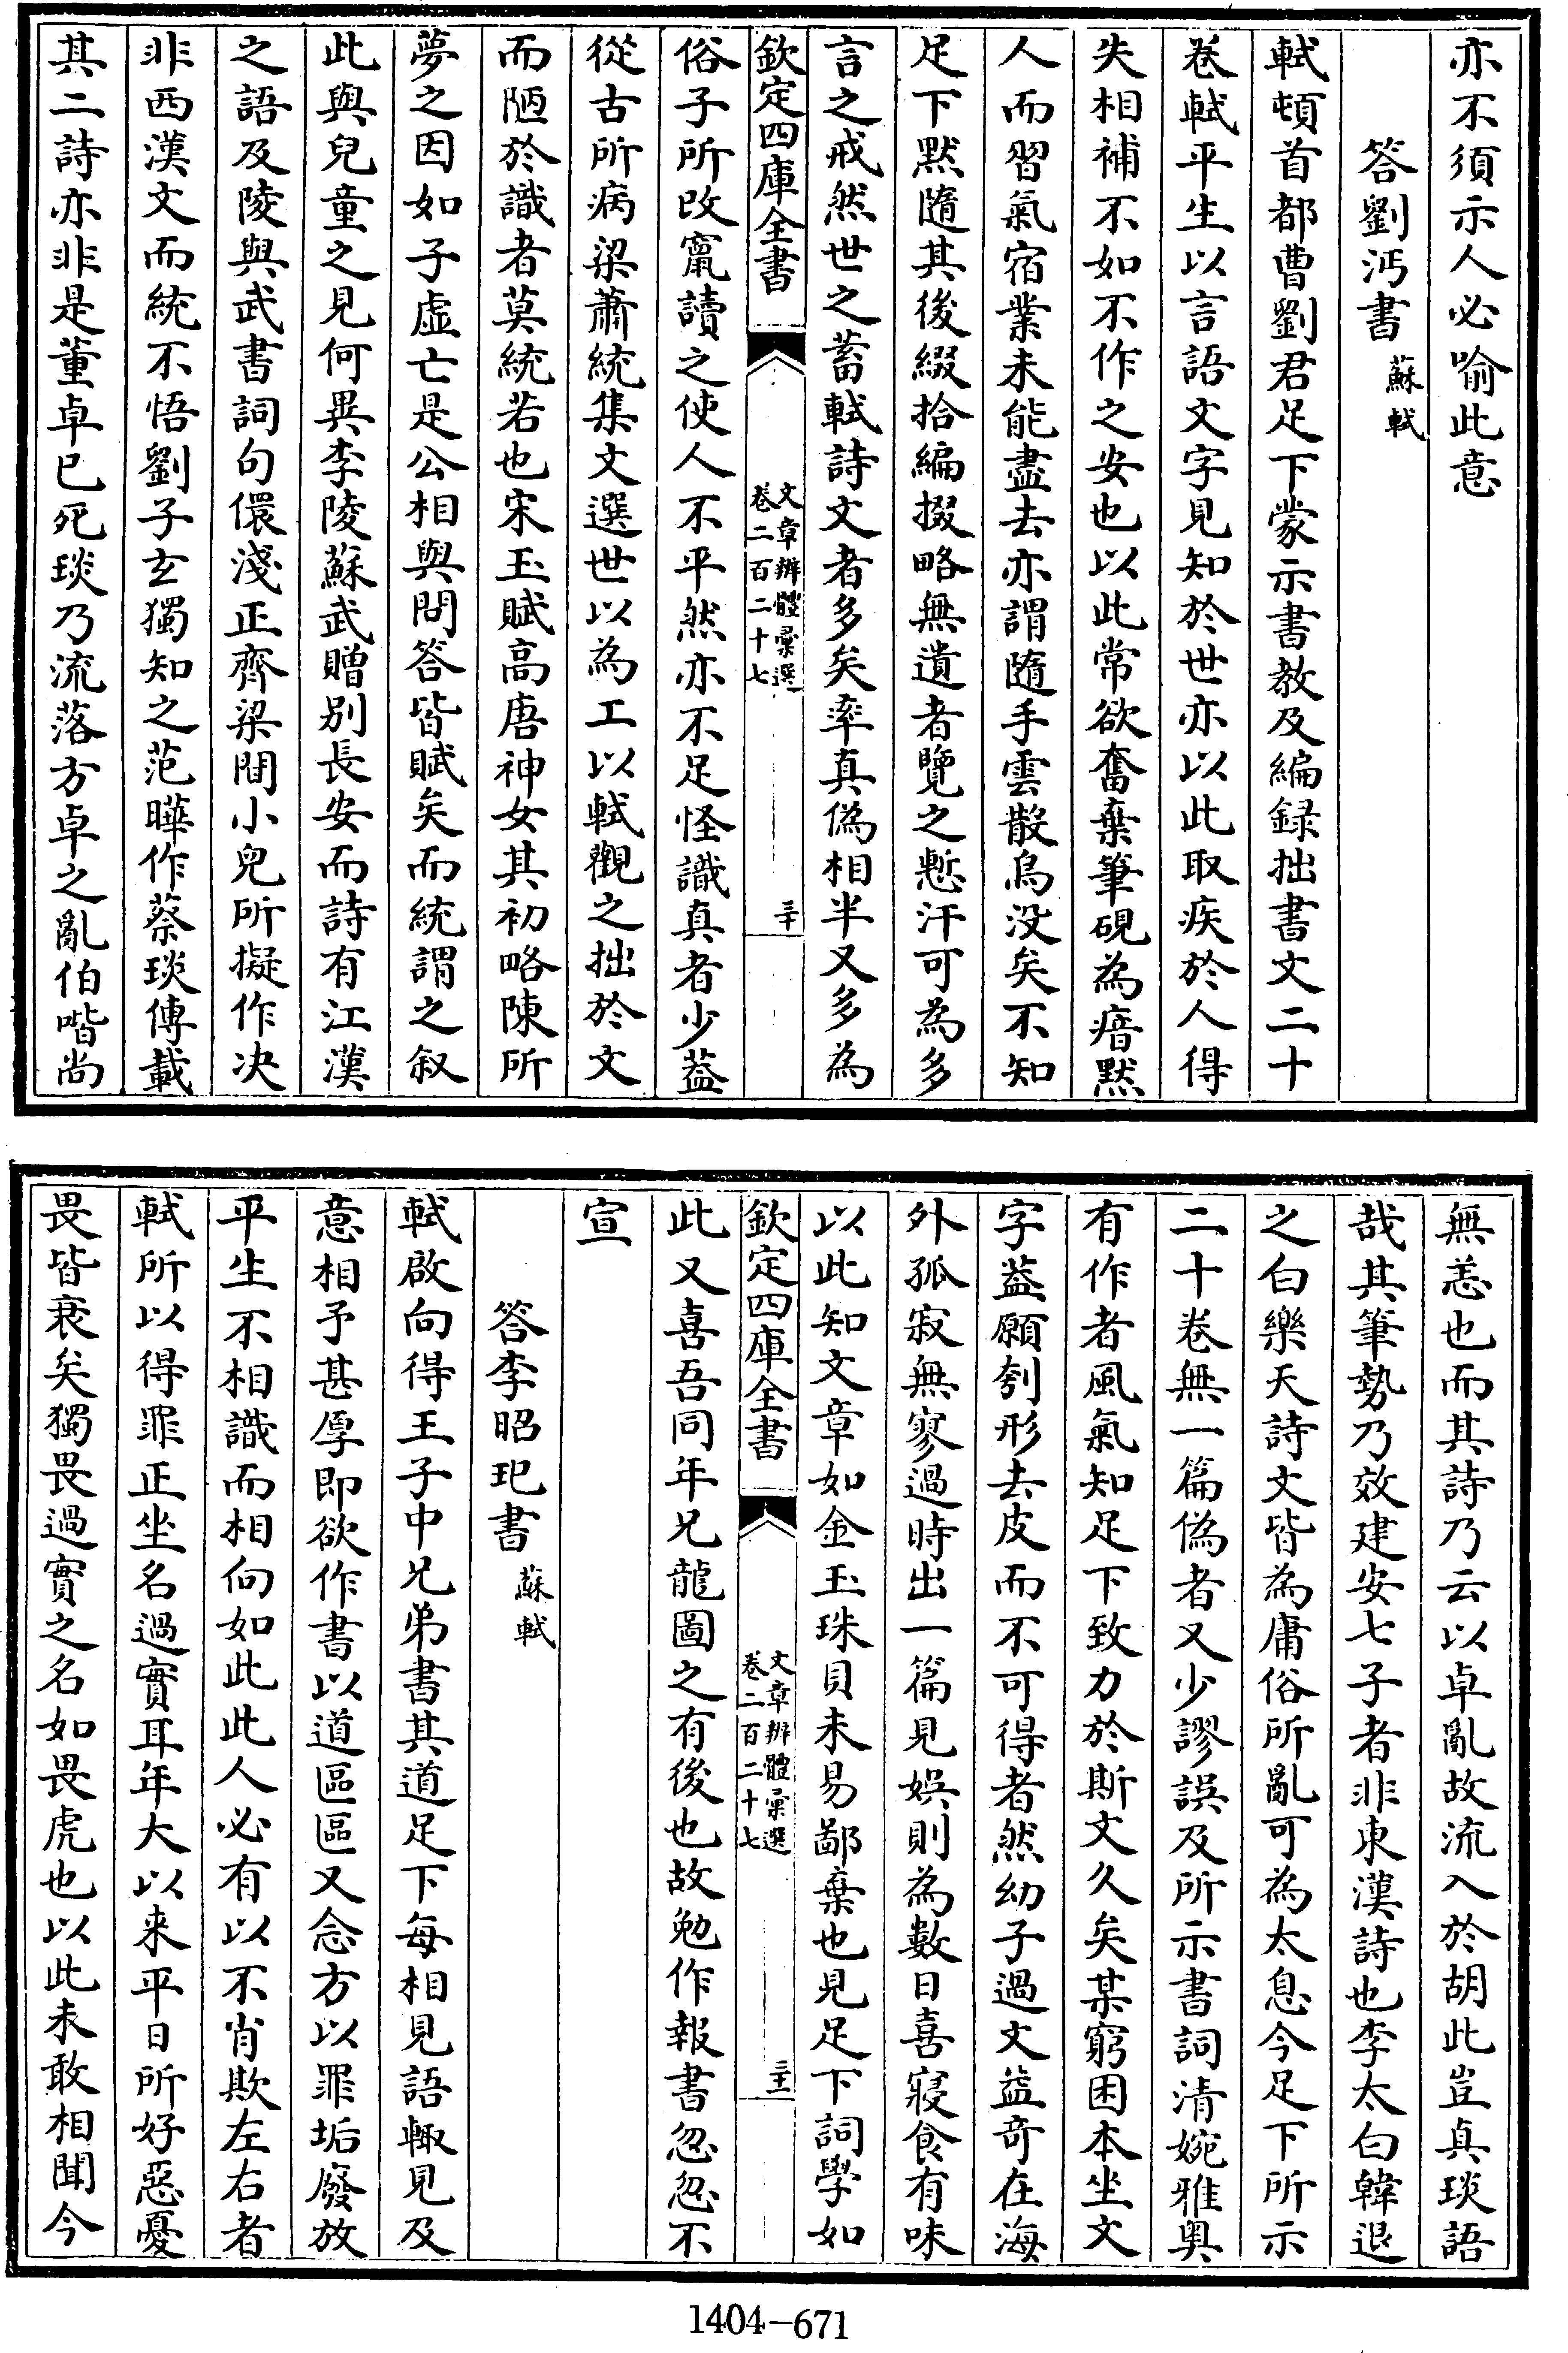 亦不須示人必喻此意
答劉沔書 蘇軾
軾頓首都曹劉君足下蒙示書教及編録拙書文二十
卷軾平生以言語文字見知於世亦以此取疾於人得
失相補不如不作之安也以此常欲奮棄筆硯為瘖默
人而習氣宿業未能盡去亦謂隨手雲散鳥没矣不知
足下默隨其後綴拾編掇略無遺者覽之慙汗可為多
言之戒然世之蓄軾詩文者多矣率真偽相半又多為
欽定四庫全書
文章辨體彚選
卷二百二十七
三十
俗子所改竄讀之使人不平然亦不足怪識真者少葢
從古所病梁蕭統集文選世以為工以軾觀之拙於文
而陋於識者莫統若也宋玉賦高唐神女其初略陳所
夢之因如子虛亡是公相與問答皆賦矣而統謂之叙
此與兒童之見何異李陵蘇武贈别長安而詩有江漢
之語及陵與武書詞句儇淺正齊梁間小兒所擬作决
非西漢文而統不悟劉子玄獨知之范曄作蔡琰傳載
其二詩亦非是董卓已死琰乃流落方卓之亂伯喈尚
無恙也而其詩乃云以卓亂故流入於胡此豈真琰語
哉其筆勢乃效建安七子者非東漢詩也李太白韓退
之白樂天詩文皆為庸俗所亂可為太息今足下所示
二十卷無一篇偽者又少謬誤及所示書詞清婉雅奥
有作者風氣知足下致力於斯文久矣某窮困本坐文
字葢願刳形去皮而不可得者然幼子過文益竒在海
外孤寂無寥過時出一篇見娱則為數日喜寢食有味
以此知文章如金玉珠貝未易鄙棄也見足下詞學如
欽定四庫全書
文章辨體彚選
卷二百二十七
三十一
此又喜吾同年兄龍圖之有後也故勉作報書忽忽不
宣
答李昭玘書 蘇軾
軾啟向得王子中兄弟書其道足下每相見語輒見及
意相予甚厚即欲作書以道區區又念方以罪垢廢放
平生不相識而相向如此此人必有以不肖欺左右者
軾所以得罪正坐名過實耳年大以来平日所好惡憂
畏皆衰矣獨畏過實之名如畏虎也以此未敢相聞今
1404-671